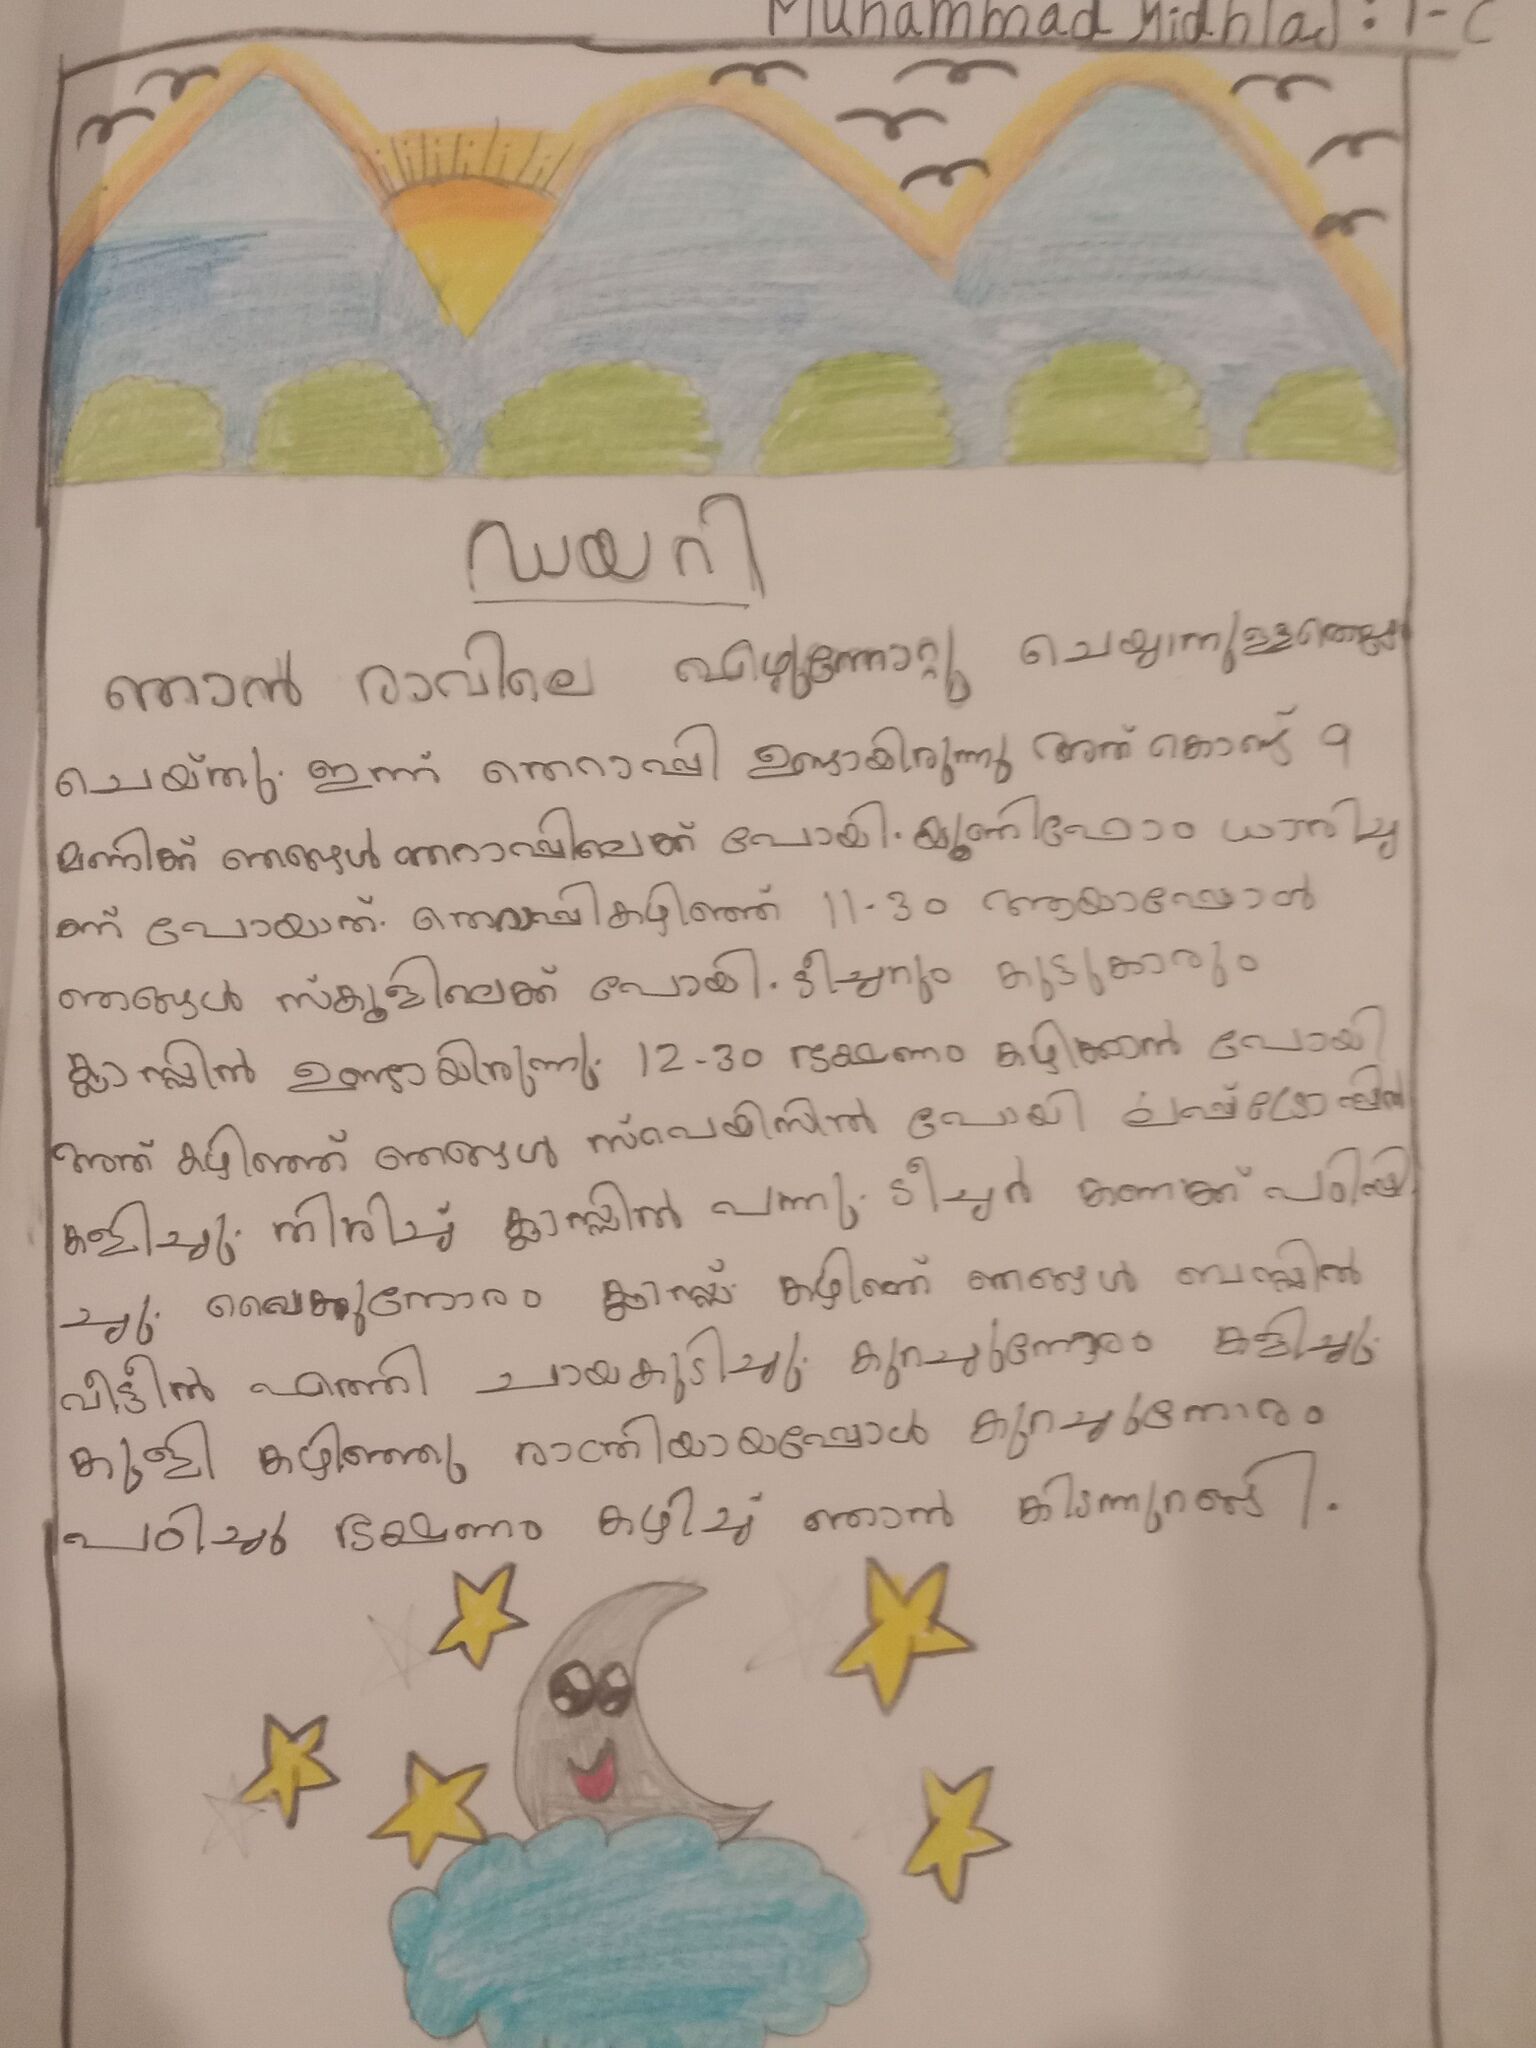 Muhammad Midhlaj : 1-C
ഡയറി
ഞാൻ രാവിലെ എഴുന്നോറ്റു ചെയുന്നുള്ളതെല്ലാം
ചെയ്തു. ഇന്ന് തെറാപ്പി ഉണ്ടായിരുന്നു അത് കൊണ്ട് 9
മണിക്ക് ഞങ്ങൾ തറാപ്പിലെക്ക് പോയി. യൂണിഫോം ധാരിച്ച
ണ് പോയത്. തെറാപ്പി കഴിഞ്ഞ് 11-30 ആയാപ്പോൾ
ഞങ്ങൾ സ്കൂളിലെക്ക് പോയി. ടീച്ചറും കുട്ടുകാരും
ക്ലാസ്സിൽ ഉണ്ടായിരുന്നു. 12-30 ഭക്ഷണം കഴിക്കാൻ പോയി
അത് കഴിഞ്ഞ് ഞങ്ങൾ സ്പെയിസിൽ പോയി
കളിച്ചു. തിരിച്ച് ക്ലാസ്സിൽ വന്നു. ടീച്ചർ കണക്ക് പഠിപ്പി
ച്ചു. വൈകുന്നോരം ക്ലാസ്സ് കഴിഞ്ഞ് ഞങ്ങൾ ബസ്സിൽ
വീട്ടിൽ എത്തി ചായകുടിച്ചു. കുറച്ചുന്നോരം കളിച്ചു.
കുളി കഴിഞ്ഞു രാത്രിയായപ്പോൾ കുറച്ചുന്നോരം
പഠിച്ചു ഭക്ഷണം കഴിച്ച് ഞാൻ കിടന്നുറങ്ങി.